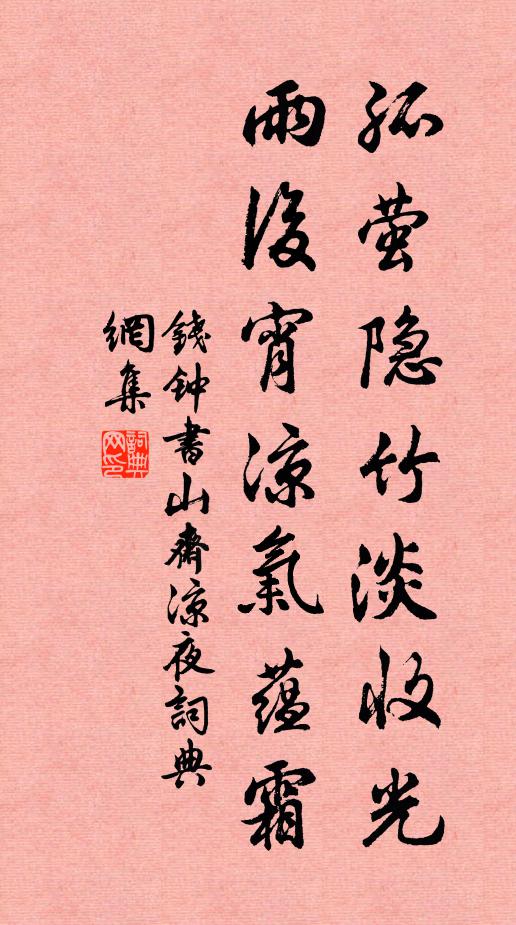 孤萤隐竹淡收光
雨後宵凉氣蕴霜
錢钟書山齋凉夜詞典
網集
詞典
网印